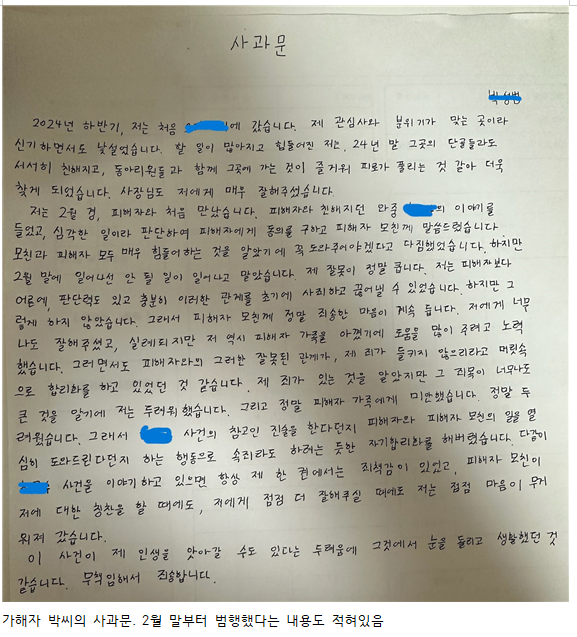 사과문
2024년 하반기, 저는 처음 에 갔습니다. 제 관심사와 분위기가 맞는 곳이라
신기하면서도 낯설었습니다. 할 일이 많아지고 힘들어진 저는, 24년 말 그곳의 단골들과도
서서히 친해지고, 동아리원들과 함께 그곳에 가는 것이 즐거워 피로가 풀리는 것 같아 더욱
찾게 되었습니다. 사장님도 저에게 매우 잘해주셨습니다.
저는 2월 경, 피해자와 처음 만났습니다. 피해자와 친해지던 와중 의 이야기를
들었고, 심각한 일이라 판단하여 피해자에게 동의를 구하고 피해자 모친께 말씀드렸습니다.
모친과 피해자 모두 매우 힘들어하는 것을 알았기에 꼭 도와주어야겠다고 다짐했었습니다. 하지만
2월 말에 일어나선 안 될 일이 일어나고 말았습니다. 제 잘못이 정말 큽니다. 저는 피해자보다
어른에, 판단력도 있고 충분히 이러한 관계를 초기에 사죄하고 끊어낼 수 있었습니다. 하지만 그
렇게 하지 않았습니다. 그래서 피해자 모친께 정말 죄송한 마음이 계속 듭니다. 저에게 너무
나도 잘해주셨고, 실례되지만 저 역시 피해자 가족을 아꼈기에 도움을 많이 주려고 노력
했습니다. 그러면서도 피해자와의 그러한 잘못된 관계가, 제 죄가 들키지 않으리라고 머릿속
으로 합리화를 하고 있었던 것 같습니다. 제 죄가 있는 것을 알았지만 그 죄목이 너무나도
큰 것을 알기에 저는 두려워했습니다. 그리고 정말 피해자 가족에게 미안했습니다. 정말 두
려웠습니다. 그래서 사건의 참고인 진술을 한다던지 피해자와 피해자 모친의 일을 열
심히 도와드린다던지 하는 행동으로 속죄라도 하려는 듯한 자기합리화를 해버렸습니다. 다같이
사건을 이야기하고 있으면 항상 제 한 켠에서는 죄책감이 있었고, 피해자 모친이
저에 대한 칭찬을 할 때에도, 저에게 점점 더 잘해주실 때에도 저는 점점 마음이 무거
워져 갔습니다.
이 사건이 제 인생을 앗아갈 수도 있다는 두려움에 그것에서 눈을 돌리고 생활했던 것
같습니다. 무책임해서 죄송합니다.
가해자 박씨의 사과문. 2월 말부터 범행했다는 내용도 적혀있음